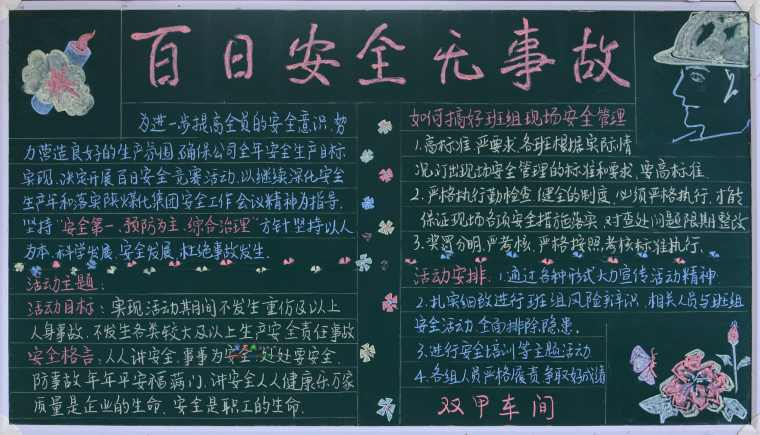 百日安全无事故
为进一步提高全员的安全意识,努
力营造良好的生产氛围,确保公司全年安全生产目标
实现,决定开展百日安全竞赛活动,以继续深化安全
生产年和落实陕煤化集团安全工作会议精神为指导.
坚持"安全第一、预防为主、综合治理"方针坚持以人
为本、科学发展、安全发展、杜绝事故发生.
活动主题:
活动目标:实现活动其间不发生重伤及以上
人身事故.不发生各类较大及以上生产安全责任事故
安全格言:人人讲安全.事事为安全.处处要安全.
防事故年年平安福满门.讲安全人人健康乐万家
质量是企业的生命.安全是职工的生命.
如何搞好班组现场安全管理
1.高标准、严要求.各班根据实际情
况订出现场安全管理的标准和要求,要高标准.
2.严格执行勤检查,健全的制度,必须严格执行,才能
保证现场各项安全措施落实,对查处问题限期整改
3.奖罚分明,严考核,严格按照考核标准执行.
活动安排:1.通过各种形式大力宣传活动精神
2.扎实细致进行班组风险辩识,相关人员与班组
安全活动全面排除隐患.
3.进行安全培训等主题活动
4.各组人员严格履责争取好成绩
双甲车间